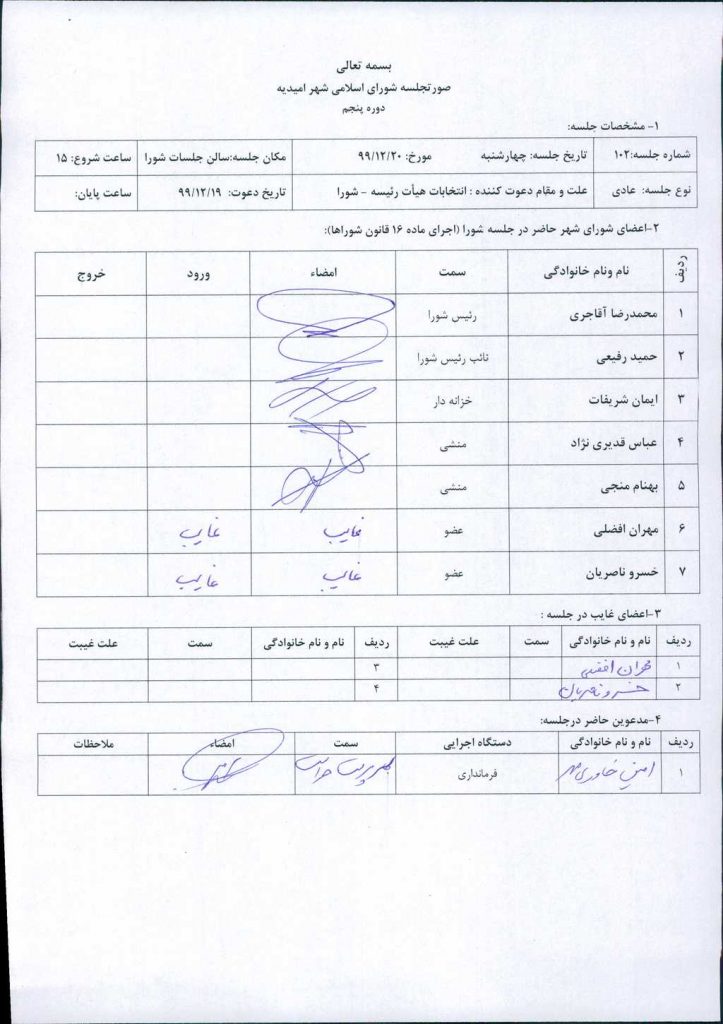 بسمه تعالی
صورتجلسه شورای اسلامی شهر امیدیه
دوره پنجم
۱- مشخصات جلسه:
شماره جلسه:۱۰۲ تاریخ جلسه: چهارشنبه مورخ: ۹۹/۱۲/۲۰ مکان جلسه:سالن جلسات شورا ساعت شروع: ۱۵
نوع جلسه: عادی علت و مقام دعوت کننده : انتخابات هیأت رئیسه - شورا تاریخ دعوت: ۹۹/۱۲/۱۹ ساعت پایان:
۲-اعضای شورای شهر حاضر در جلسه شورا (اجرای ماده ۱۶ قانون شوراها):
ردیف نام ونام خانوادگی سمت امضاء ورود خروج
۱ محمدرضا آقاجری رئیس شورا
۲ حمید رفیعی نائب رئیس شورا
۳ ایمان شریفات خزانه دار
۴ عباس قدیری نژاد منشی
۵ بهنام منجی منشی
۶ مهران افضلی عضو غایب غایب
۷ خسرو ناصریان عضو غایب غایب
۳-اعضای غایب در جلسه :
ردیف نام و نام خانوادگی سمت علت غیبت ردیف نام و نام خانوادگی سمت علت غیبت
۱ مهران افضلی ۳
۲ خسرو ناصریان ۴
۴-مدعوین حاضر درجلسه:
ردیف نام و نام خانوادگی دستگاه اجرایی سمت امضاء ملاحظات
۱ امین خاوری فرمانداری سرپرست حراست